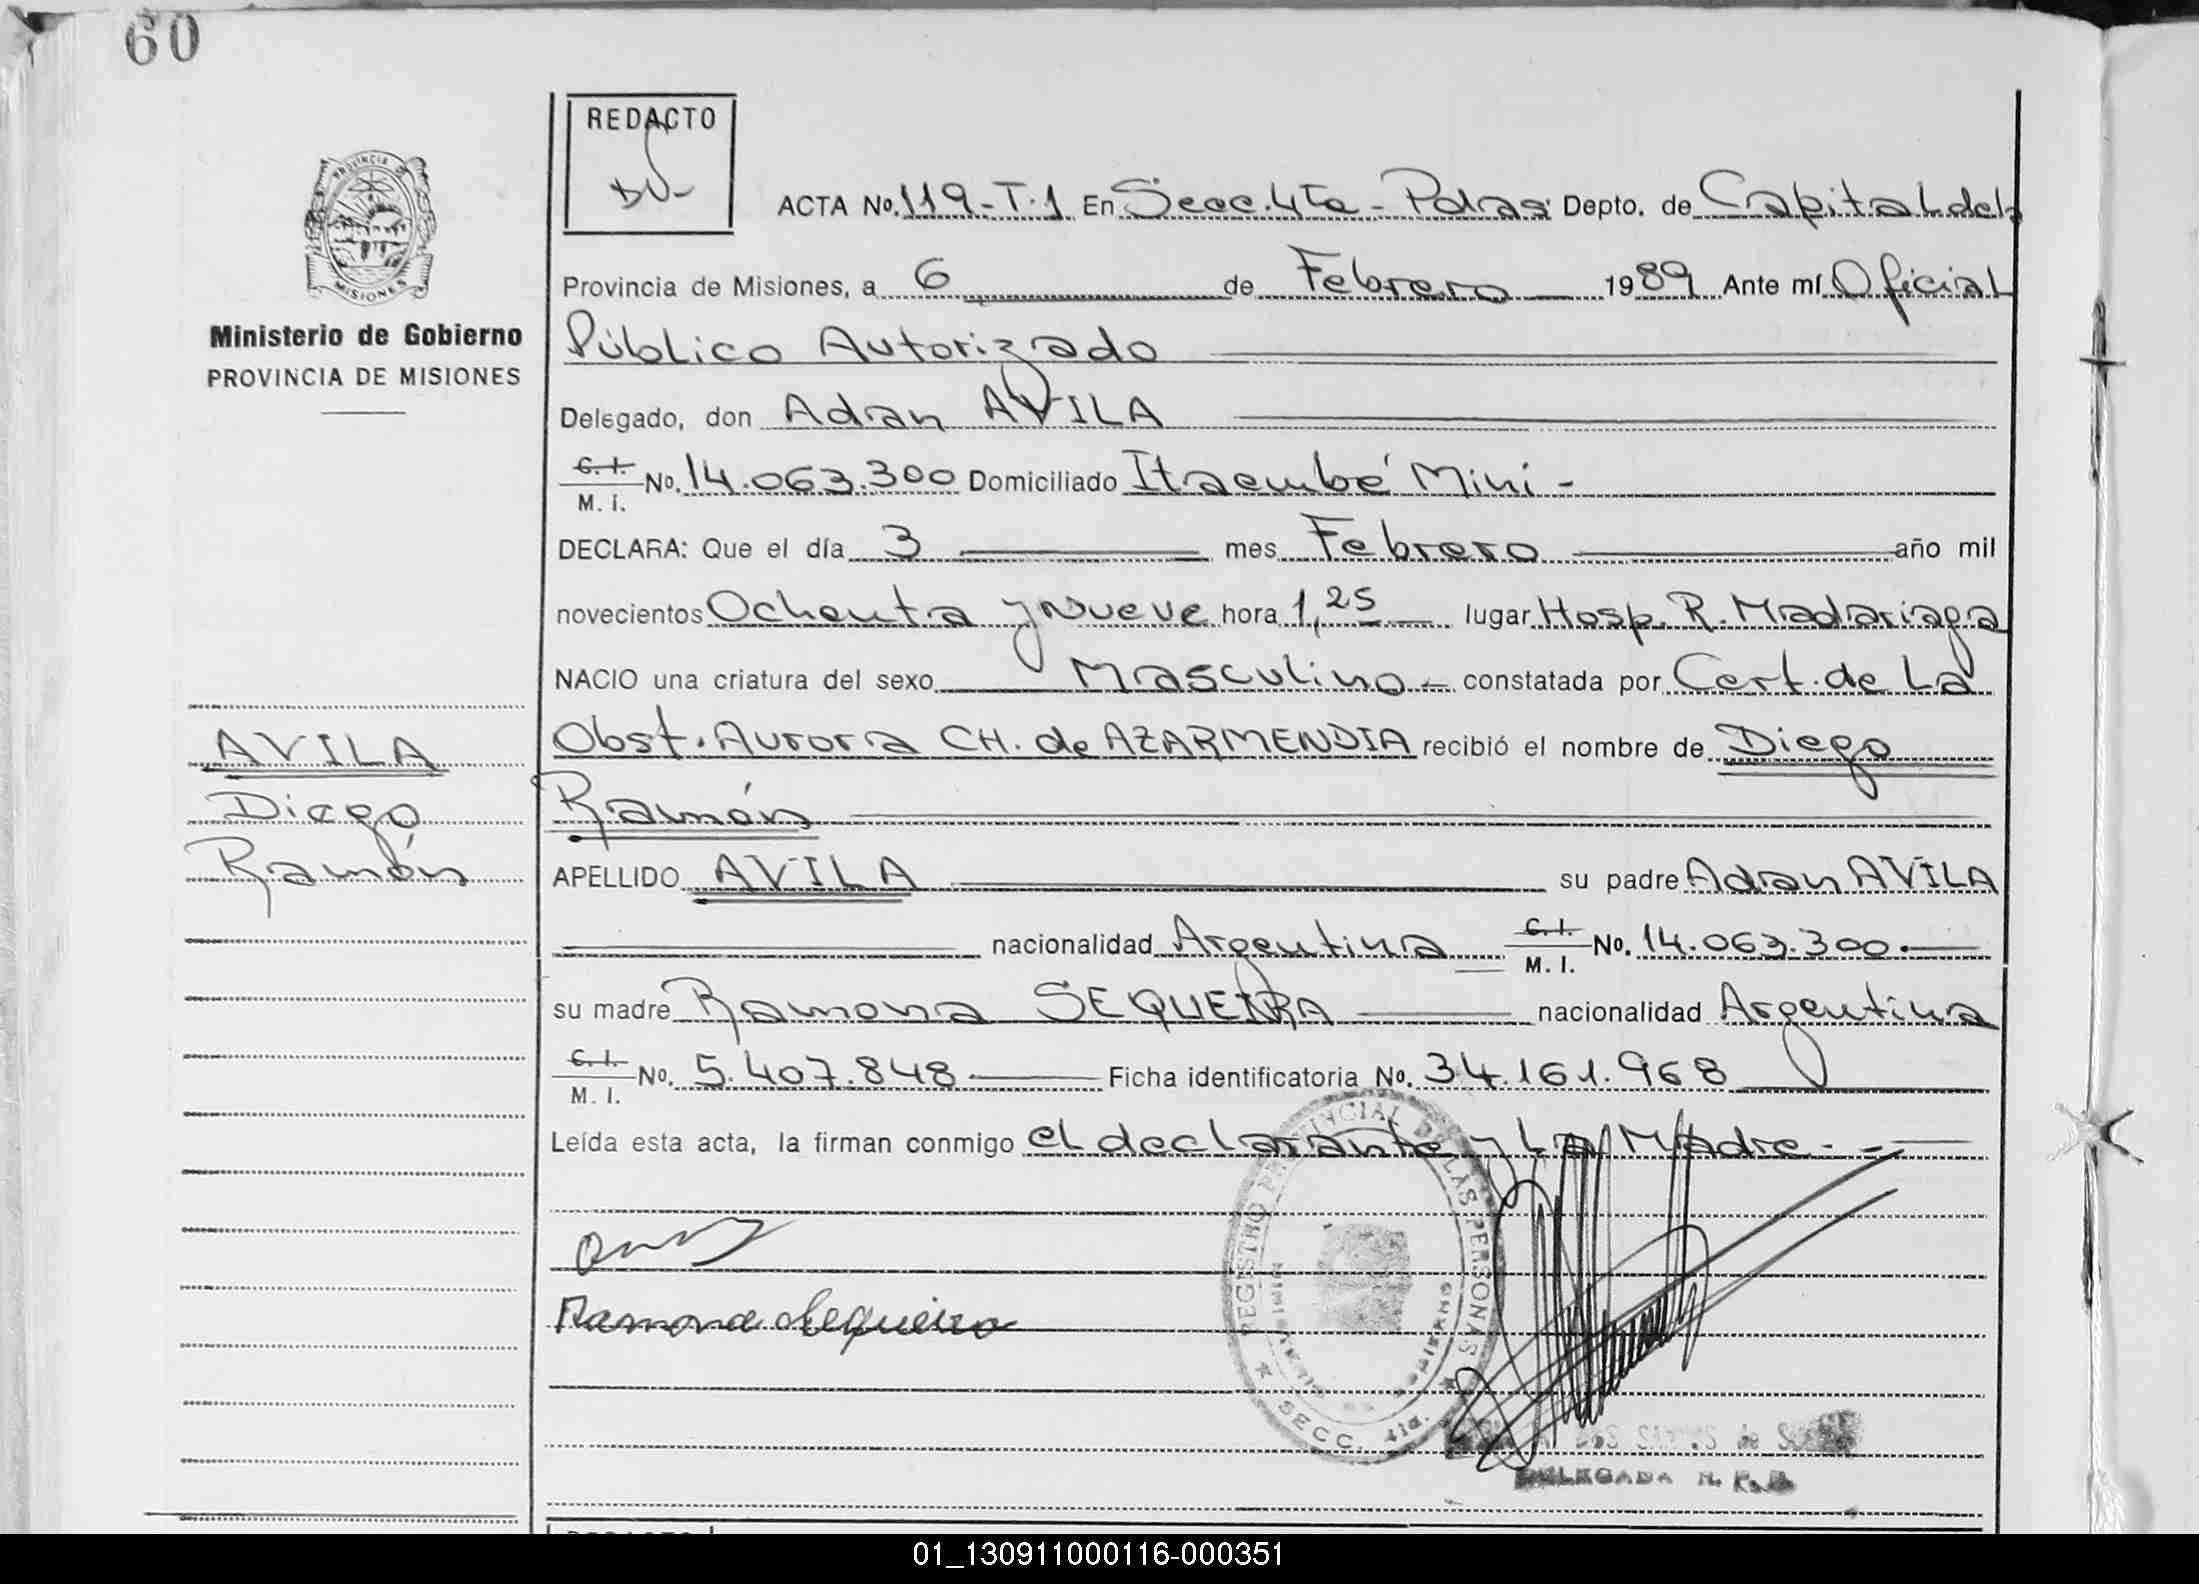 60
REDACTO
PROVINCIA DE
MISIONES
Ministerio de Gobierno
PROVINCIA DE MISIONES
ACTA No. 119-T.1 En Secc. 4Ta - Pdas Depto. de Capital de la
Provincia de Misiones, a 6 de Febrero 1989 Ante mí Oficial
Público Autorizado
Delegado, don Adran AVILA
C. I.
M. I. No. 14.063.300 Domiciliado Itaembé Mini -
DECLARA: Que el día 3 mes Febrero año mil
novecientos Ochenta y Nueve hora 1,25 lugar Hosp. R. Madariaga
NACIO una criatura del sexo Masculino - constatada por Cert. de La
Obst. Aurora CH. de AZARMENDIA recibió el nombre de Diego
Ramón
APELLIDO AVILA su padre Adran AVILA
nacionalidad Argentina C. I.
M. I. No. 14.063.300.
su madre Ramona SEQUEIRA nacionalidad Argentina
C. I.
M. I. No. 5.407.848 Ficha identificatoria No. 34.161.968
Leída esta acta, la firman conmigo el declarante y La Madre. -
Ramona Sequeira
AVILA
Diego
Ramón
REGISTRO PROVINCIAL DE LAS PERSONAS
SECC. 4ta.
DELEGADA R. P. P.
01_130911000116-000351